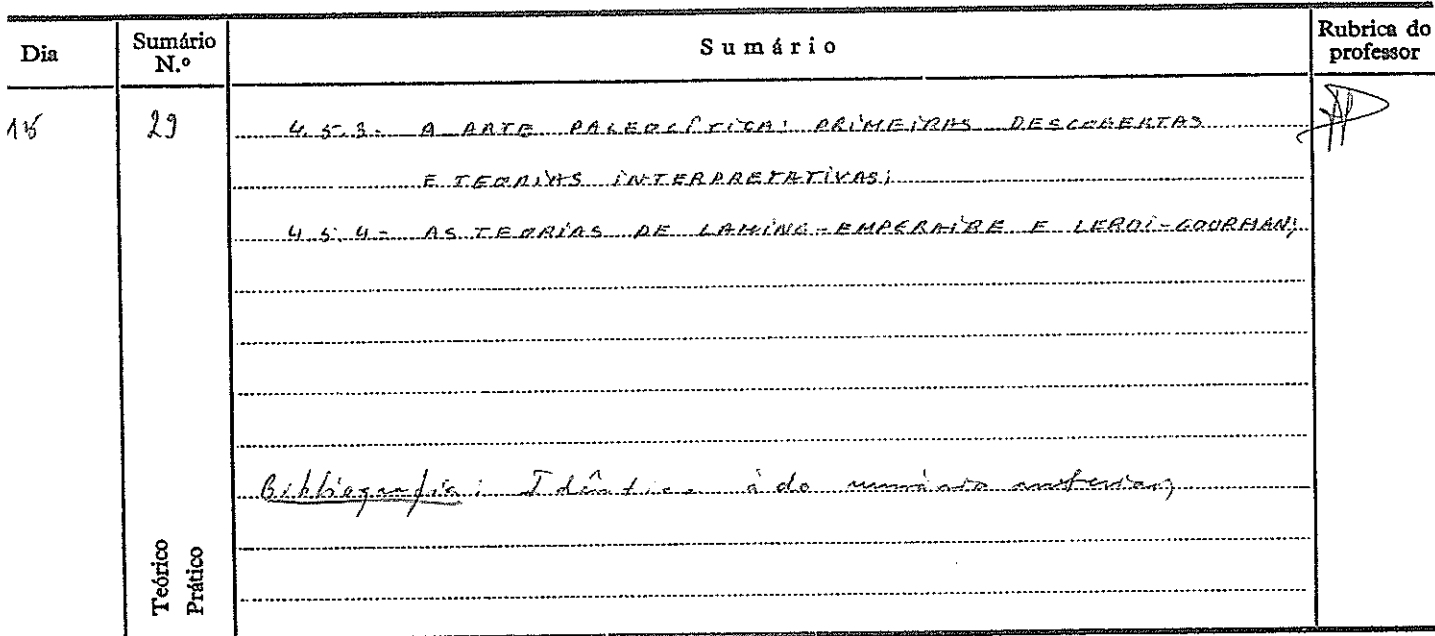 Dia
Sumário N.º
Sumário
Rubrica do professor
15
29
4.5.3- A ARTE PALEOLÍTICA: PRIMEIRAS DESCOBERTAS
E TEORIAS INTERPRETATIVAS;
4.5.4- AS TEORIAS DE LAMING-EMPERAIRE E LEROI-GOURHAN;
Bibliografia: Idêntica à do sumário anterior;
Teórico
Prático